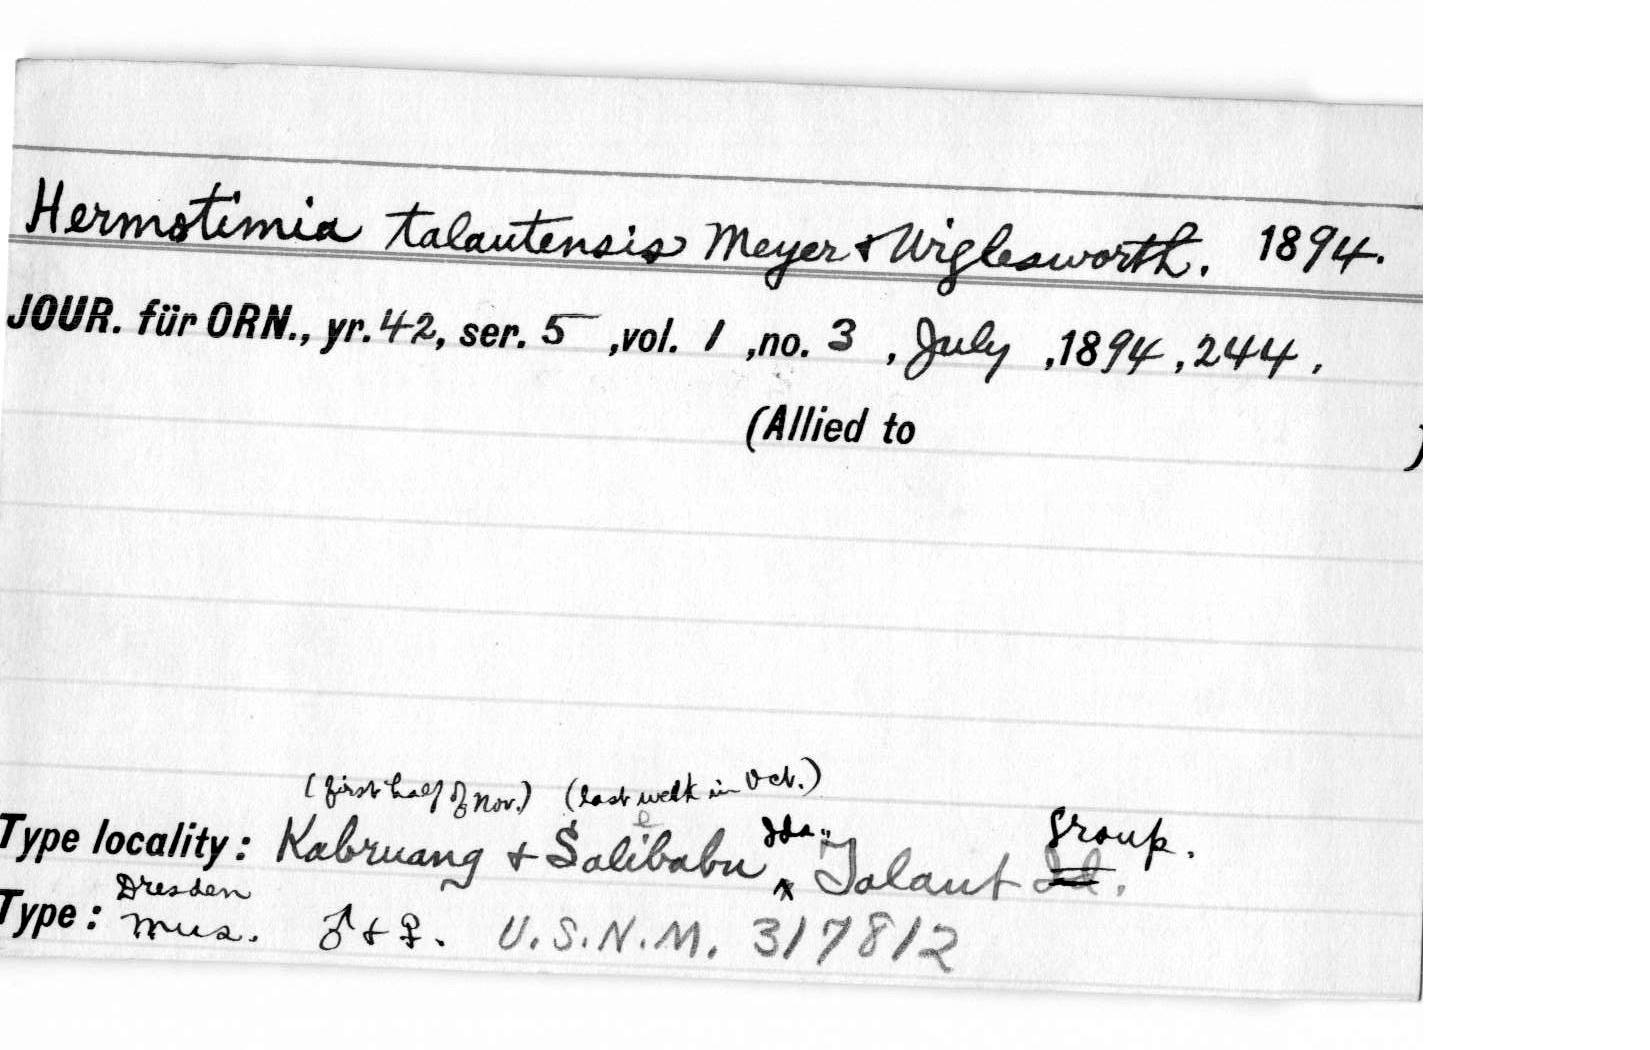 Hermotimia talautensis Meyer & Wiglesworth. 1894.
JOUR. für ORN., yr. 42, ser. 5, vol. 1, no. 3, July, 1894, 244.
(Allied to )
(first half of Nov.) (last week in Oct.)
Type locality: Kabruang & Salibabu Ids., Talaut Group.
Type: Dresden Mus. ♂ & ♀. U.S.N.M. 317812